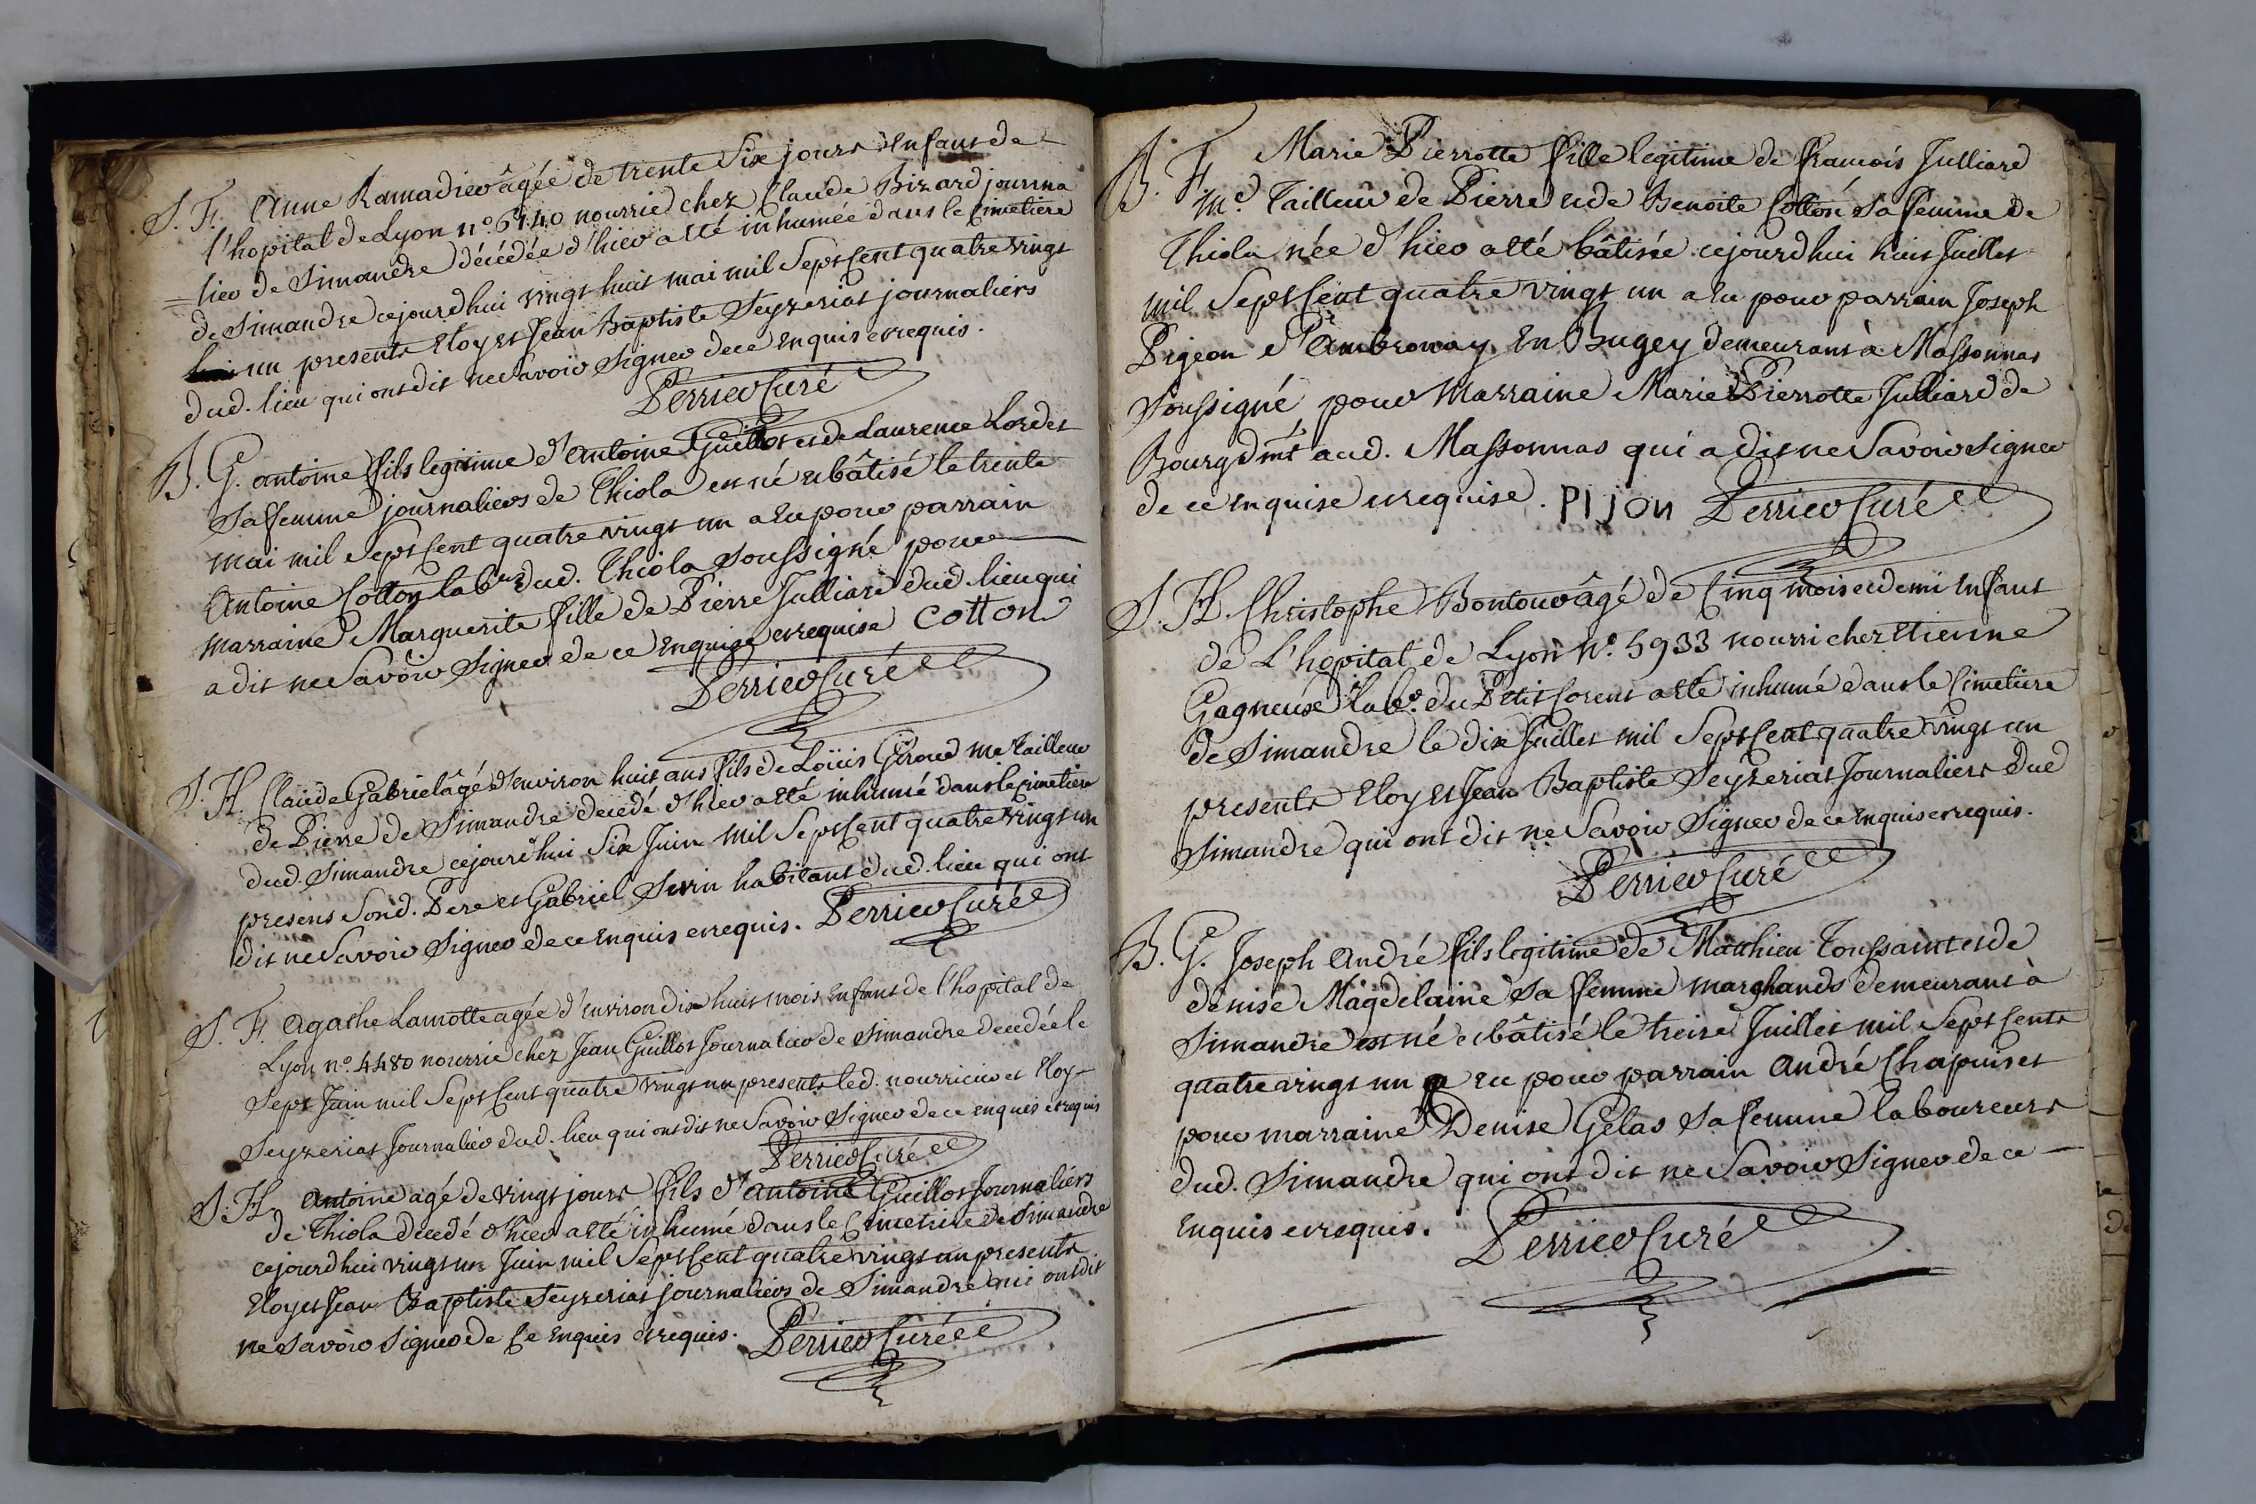 S. F. Anne Ramadier âgée de trente Six jours Enfant de
l'hopital de Lyon n.º 6140 nourrie chez Claude Bizard journa
= lier de Simandre décédée d'hier a eté inhumée dans le Cimetiere
de Simandre cejourdhui vingt huit mai mil Sept Cent quatre vingt
un presents Eloy et Jean Baptiste Seyzeriat journaliers
dud. lieu qui ont dit ne Savoir Signer de ce Enquis et requis.
Perrier Curé
B. G. antoine fils legitime d'antoine Guillot et de Laurence Lordet
Sa femme journaliers de Thiola est né et bâtisé le trente
mai mil Sept Cent quatre vingt un a Eu pour parrain
Antoine Cotton lab.eur dud. Thiola Soussigné pour
marraine Marguerite fille de Pierre Julliard dud. lieu qui
a dit ne Savoir Signer de ce Enquise et requise Cotton
Perrier Curé
S. H. Claude Gabriel âgé d'Environ huit ans fils de Loüis Giroud me Tailleur
de Pierre de Simandre decedé d'hier a eté inhumé dans le Cimetiere
dud. Simandre cejourd'hui Six Juin mil Sept Cent quatre vingt un
presens Sond. Pere et Gabriel Sivin habitans dud. lieu qui ont
dit ne Savoir Signer de ce Enquis et requis. Perrier Curé
S. F. Agathe Lamotte agée d'Environ dix huit mois Enfant de l'hopital de
Lyon n.º 4480 nourrie chez Jean Guillot Journalier de Simandre decedée le
Sept Juin mil Sept Cent quatre vingt un presents led. nourricier et Eloy
Seyzeriat Journalier dud. lieu qui ont dit ne Savoir Signer de ce enquis et requis
Perrier Curé
S. H. Antoine agé de vingt jours fils d'antoine Guillot Journaliers
de Thiola decedé d'hier a eté inhumé dans le Cimetiere de Simandre
cejourdhui vingt un Juin mil Sept Cent quatre vingt un presents
Eloy et Jean Baptiste Seyzeriat journaliers de Simandre qui ont dit
ne Savoir Signer de Ce Enquis et requis. Perrier Curé
B. F. Marie Pierrotte fille legitime de francois Julliard
m.e Tailleur de Pierre et de Benoite Cotton Sa femme de
Thiola née d'hier a eté bâtisée cejourdhui huit Juillet
mil Sept Cent quatre vingt un a Eu pour parrain Joseph
Pigeon d'Ambronay En Bugey demeurant à Massonnas
Soussigné pour Marraine Marie Pierrotte Julliard de
Bourg dmt aud. Massonnas qui a dit ne Savoir Signer
de ce Enquise et requise. PIJON Perrier Curé
S. H. Christophe Bontour âgé de Cinq mois et demi Enfant
de L'hopital de Lyon N.º 5933 nourri chez Etienne
Gagneux lab.r du Petit Corent a eté inhumé dans le Cimetiere
de Simandre le dix Juillet mil Sept Cent quatre vingt un
presents Eloy et Jean Baptiste Seyzeriat Journaliers dud
Simandre qui ont dit ne Savoir Signer de ce Enquis et requis.
Perrier Curé
B. G. Joseph André fils legitime de Matthieu Toussaint et de
denise Magdelaine Sa femme marchands demeurant à
Simandre est né et bâtisé le treize Juillet mil Sept Cents
quatre vingt un a Eu pour parrain André Chapuis et
pour marraine Denise Gelas Sa femme laboureurs
dud. Simandre qui ont dit ne Savoir Signer de ce
Enquis et requis. Perrier Curé